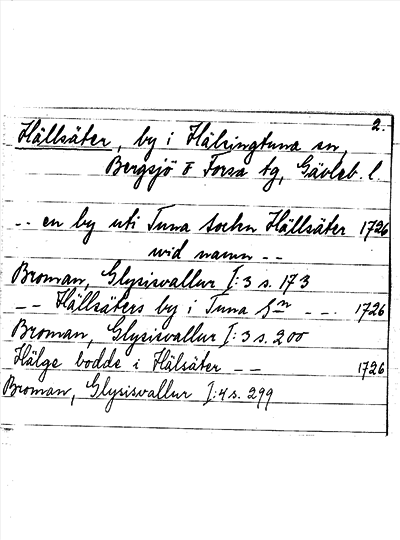 2.
Hällsäter, by i Hälsingtuna sn,
Bergsjö o Forsa tg, Gävleb. l.
-- en by uti Tuna sochn Hällsäter 1726
wid namn --
Broman, Glysisvallur I:3 s. 173
-- Hällsäters by i Tuna Sn -- 1726
Broman, Glysisvallur I:3 s. 200
Hälge bodde i Hälsäter -- 1726
Broman, Glysisvallur I:4 s. 299